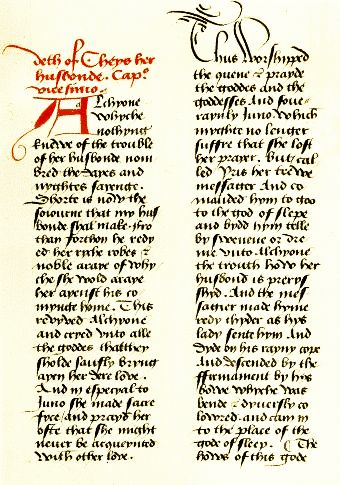 deth of Cheys her
husbonde. Cap.º
vicesimo.
Alchyone
Whyche
nothyng
knewe of the trouble
of her husbonde nom
bred the dayes and
nyghtes sayenge.
Shorte is now the
soiourne that my hus
bonde shal make. fro
than forthon he redy
ed her ryche robes &
noble araye of why
che she wold araye
her ayenst his co
mynge home. This
Alchyone
and cryed vnto alle
the goddes thatthey
sholde saufly bryng
ayen her dere love.
And in especyal to
Juno she made sacre
fyce/and prayd her
ofte that she might
never be acqueynted
With other love.
Thus Worshipped
the quene & prayde
the goddes and the
goddesses And souе-
raynly Juno. Which
myghte no lenger
suffre that she lost
her prayer. But cal
led Yris her trewe
messager And co
manded hym to goo
to the god of slepe
and bydd hym telle
by sweuene or dre
me vnto Alchyone
the trouth how her
husbond is perys
shyd. And the mes
sager made hyme
redy thyder as hys
lady sente hym And
dyde on his rayny cope
And descended by the
ffirmament by hys
bowe whyche was
bende & dyuersly co
lowred. and cam in
to the place of the
gode of sleep. The
hows of this gode